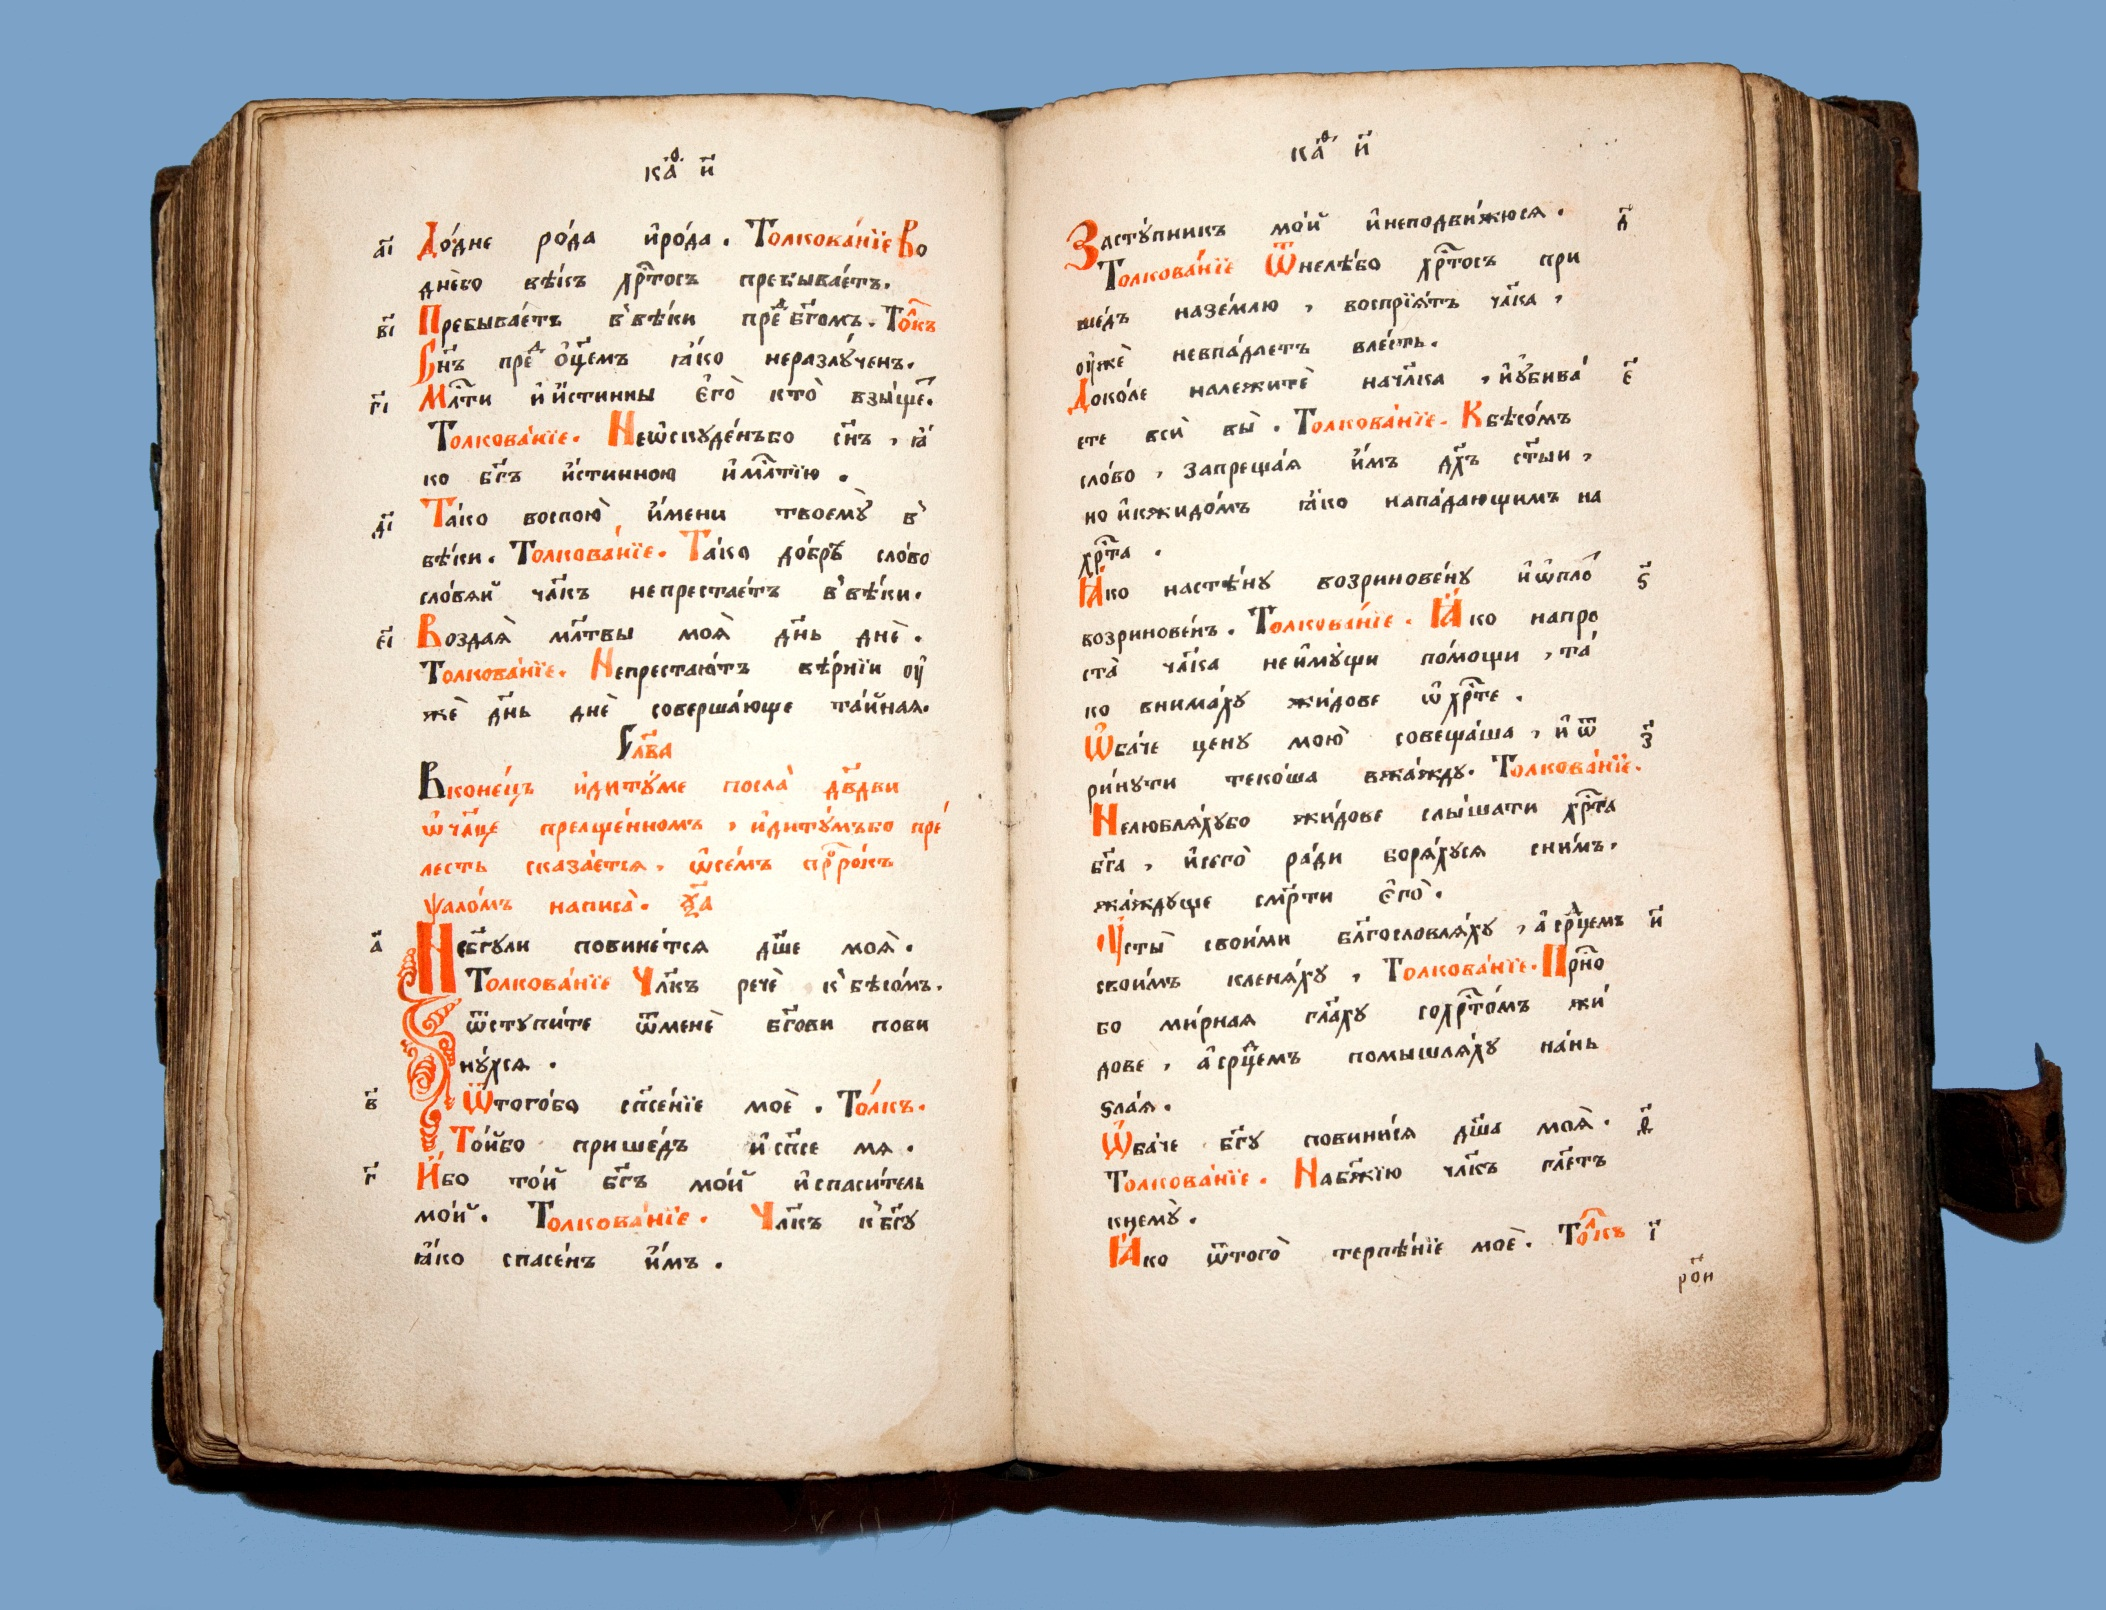 каѳ҃ и҃
а҃і До́дне ро́да и҆ро́да . Толкова́нїе Во
днѐво вѣ́къ хр҇то́съ пребыва́етъ.
в҃і Пребыва́етъ в̾вѣ́ки прⷣе бг҃омъ . То́лкъ
Сн҃ъ преⷣ о҆ц҃емъ ꙗ҆́ко неразлꙋ́ченъ.
г҃і Мл҇ти и҆и҆́стинны є҆гѐ кто̀ взы́щеⷮ.
Толкова́нїе. Неѡ҆скꙋде́нъбо сн҃ъ , ꙗ҆́
ко бг҃ъ и҆́стинною и҆мл҇тїю .
д҃і Та́ко воспою̀ и҆́мени твоемꙋ̀ в̾
вѣ́ки. Толкова́нїе. Та́ко до́брѣ сло́во
сло́вѧй чл҃къ непреста́етъ в̾вѣ́ки.
є҃і Воздаѧ̀ мл҃твы моѧ̀ дн҃ь днѐ .
Толкова́нїе. Непреста́ютъ вѣ́рнїи ᲂу҆
жѐ дн҃ь днѐ соверша́юще та́йнаѧ.
Сла҃ва
Вконе́цъ и҆дитꙋ́ме посла̀ дв҃дви
ѡ҆чл҃це преⷧще́нномъ , и҆дитꙋ́мъбо пре́
лесть сказа́етсѧ , ѡ҆се́мъ прⷪ҇ро́къ
ѱало́мъ написа̀ . ѯ҃а
а҃ Небг҃ꙋли повине́тсѧ дш҃е моѧ̀ .
Толкова́нїе Чл҃къ речѐ к̾бѣсо́мъ .
ѿстꙋпи́те ѿменѐ бг҃ови пови
нꙋ́хсѧ .
в҃ Ѿтого́бо сп҃се́нїе моѐ . То́лкъ .
То́йбо прише́дъ и҆сп҃се мѧ .
г҃ И҆́бо то́й бг҃ъ мо́й и҆спаси́тель
мо́й. Толкова́нїе . Чл҃къ к̾бг҃ꙋ
ꙗ҆́ко спасе́нъ и҆́мъ .
каѳ҃ и҃
Застꙋ́пникъ мо́й и҆неподви́жюсѧ . д҃
Толкова́нїе Ѿнелѣ́бо хр҇то́съ при
ше́дъ назе́млю , воспрїѧ́тъ чл҃ка ,
ᲂу҆жѐ невпа́даетъ вле́сть.
Доко́ле належитѐ начл҃ка , и҆ᲂу҆бива́ є҃
ете всѝ вы̀ . Толкова́нїе. Кбѣсо́мъ
сло́во , запреща́ѧ и҆́мъ дх҃ъ ст҃ыи ,
но и҆кжидо́мъ ꙗ҆́ко напа́дающимъ на
хр҇та̀ .
Ꙗ҆́ко настѣ́нꙋ возринове́нꙋ и҆ѡ҆пло́ ѕ҃
возринове́нъ . Толкова́нїе . Ꙗ҆́ко напро
ста̀ чл҃ка неи҆мꙋ́щи по́мощи , та́
ко внима́хꙋ жи́дове ѡ҆хр҇те .
Ѡ҆ба́че цѣнꙋ мою̀ совеща́ша , и҆ ѿ з҃
ри́нꙋти теко́ша вжа́ждꙋ. Толкова́нїе.
Нелюблѧ́хꙋбо жи́дове слы́шати хр҇та
бг҃а , и҆сегѐ ра́ди борѧ́хꙋсѧ сни́мъ.
жа́ждꙋще см҃рти є҆гѐ .
Оу҆сты̀ свои́ми бл҃гословлѧ́хꙋ , а҆срⷣцемъ и҃
свои́мъ кленѧ́хꙋ , Толкова́нїе. Прⷭ҇но
бо ми́рнаѧ гл҃ахꙋ сохр҇то́мъ жи́
дове , а҆срⷣцемъ помышлѧ́хꙋ на́нь
ѕла́ѧ .
Ѡ҆ба́че бг҃ꙋ повини́сѧ дш҃а моѧ̀ . ѳ҃
Толкова́нїе . Набж҃їю чл҃къ гл҃етъ
кнемꙋ̀ .
Ꙗ҆́ко ѿтогѐ терпѣ́нїе моѐ . То́лкъ і҃
ро҃и